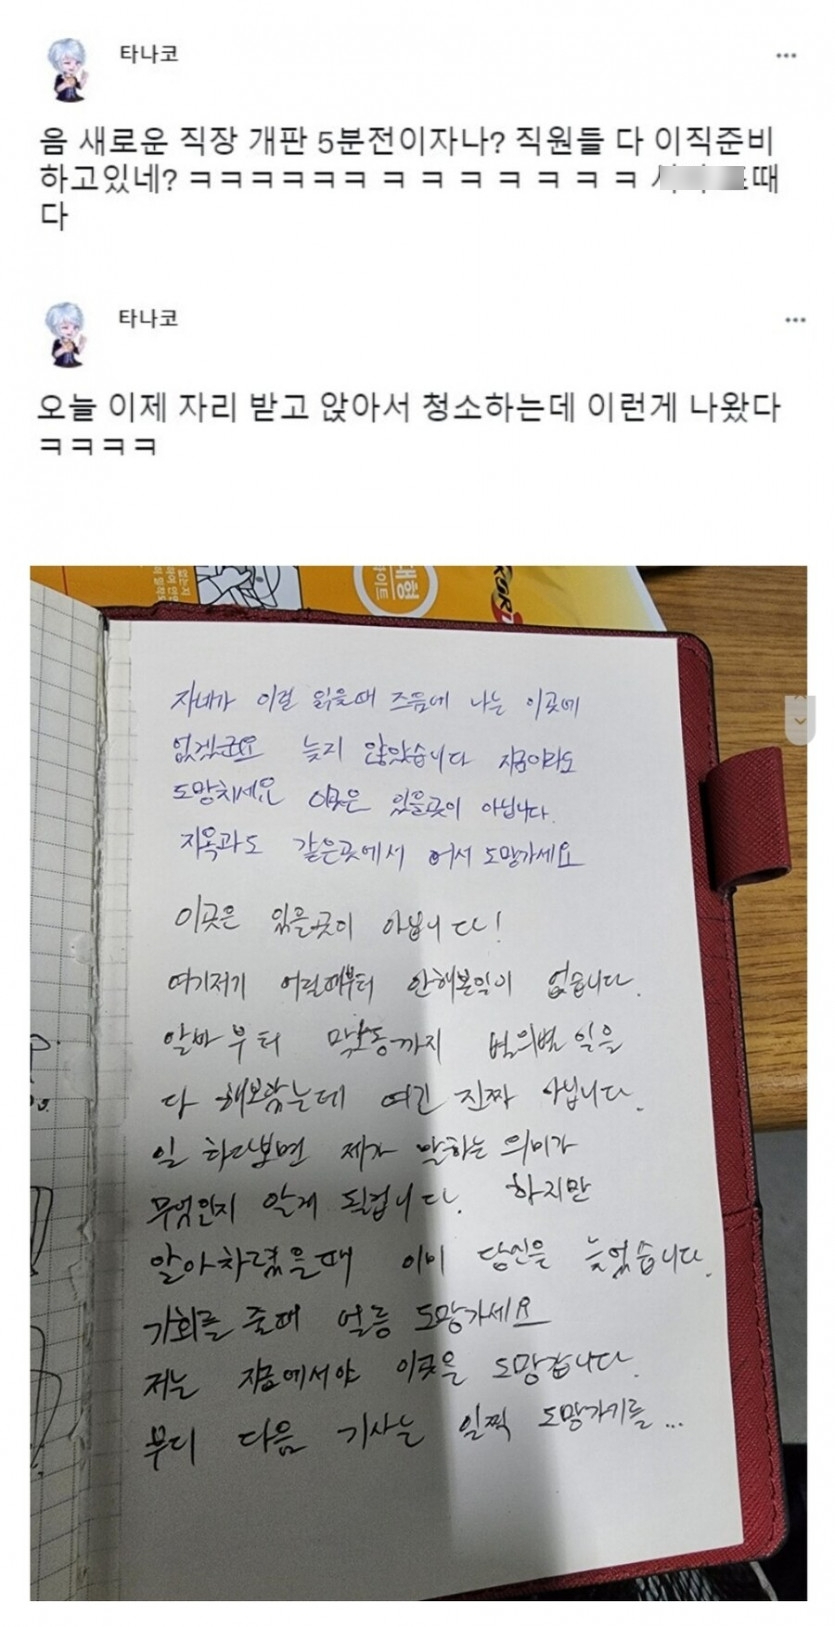 타나코
음 새로운 직장 개판 5분전이자나? 직원들 다 이직준비
하고있네? ㅋㅋㅋㅋㅋㅋ ㅋ ㅋ ㅋ ㅋ ㅋ ㅋ ㅋ 때
다
타나코
오늘 이제 자리 받고 앉아서 청소하는데 이런게 나왔다
ㅋㅋㅋㅋ
대형
자네가 이걸 읽을때 즈음에 나는 이곳에
없겠군요 늦지 않았습니다 지금이라도
도망치세요 이곳은 있을곳이 아닙니다.
지옥과도 같은곳에서 어서 도망가세요
이곳은 있을곳이 아닙니다!
여기저기 어릴때부터 안해본일이 없습니다.
알바부터 막노동까지 별의별 일을
다 해보았는데 여긴 진짜 아닙니다.
일 하다보면 제가 말하는 의미가
무엇인지 알게 될겁니다. 하지만
알아차렸을때 이미 당신은 늦었습니다.
기회를 줄때 얼릉 도망가세요
저는 지금에서야 이곳을 도망갑니다.
부디 다음 기사는 일찍 도망가기를...